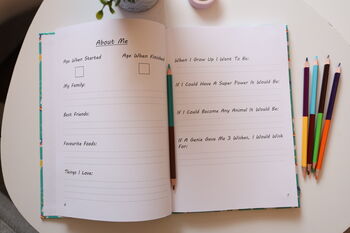 About Me
Age When Started Age When Finished
My Family:
Best Friends:
Favourite Foods:
Things I Love:
When I Grow Up I Want To Be:
If I Could Have A Super Power It Would Be:
If I Could Become Any Animal It Would Be:
If A Genie Gave Me 3 Wishes, I Would Wish
For: